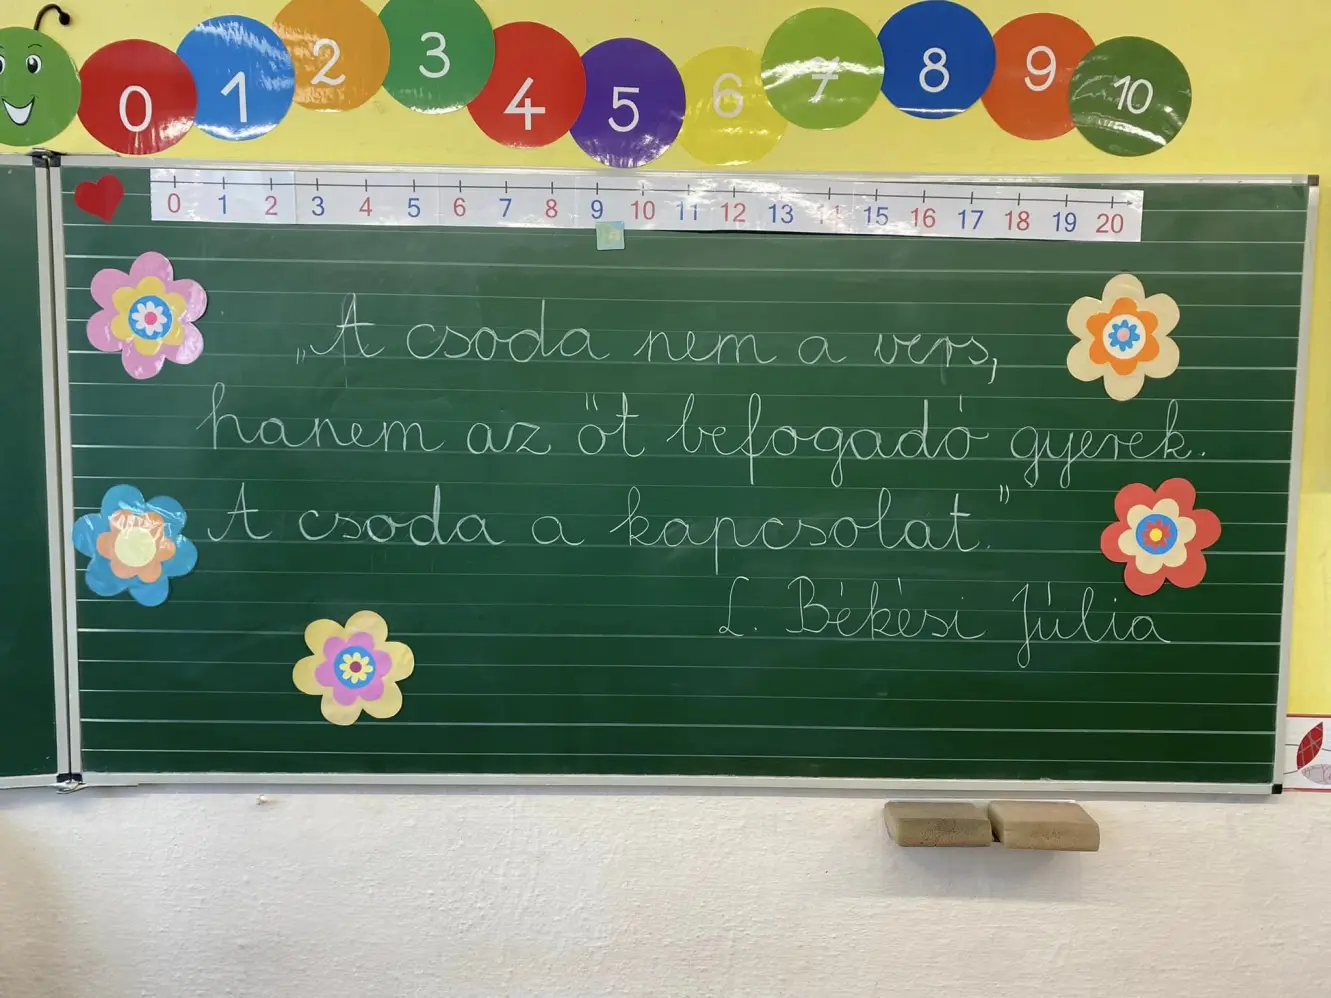 0 1 2 3 4 5 6 7 8 9 10
0 1 2 3 4 5 6 7 8 9 10 11 12 13 14 15 16 17 18 19 20
„A csoda nem a vers,
hanem az őt befogadó gyerek.
A csoda a kapcsolat."
L. Békési Júlia